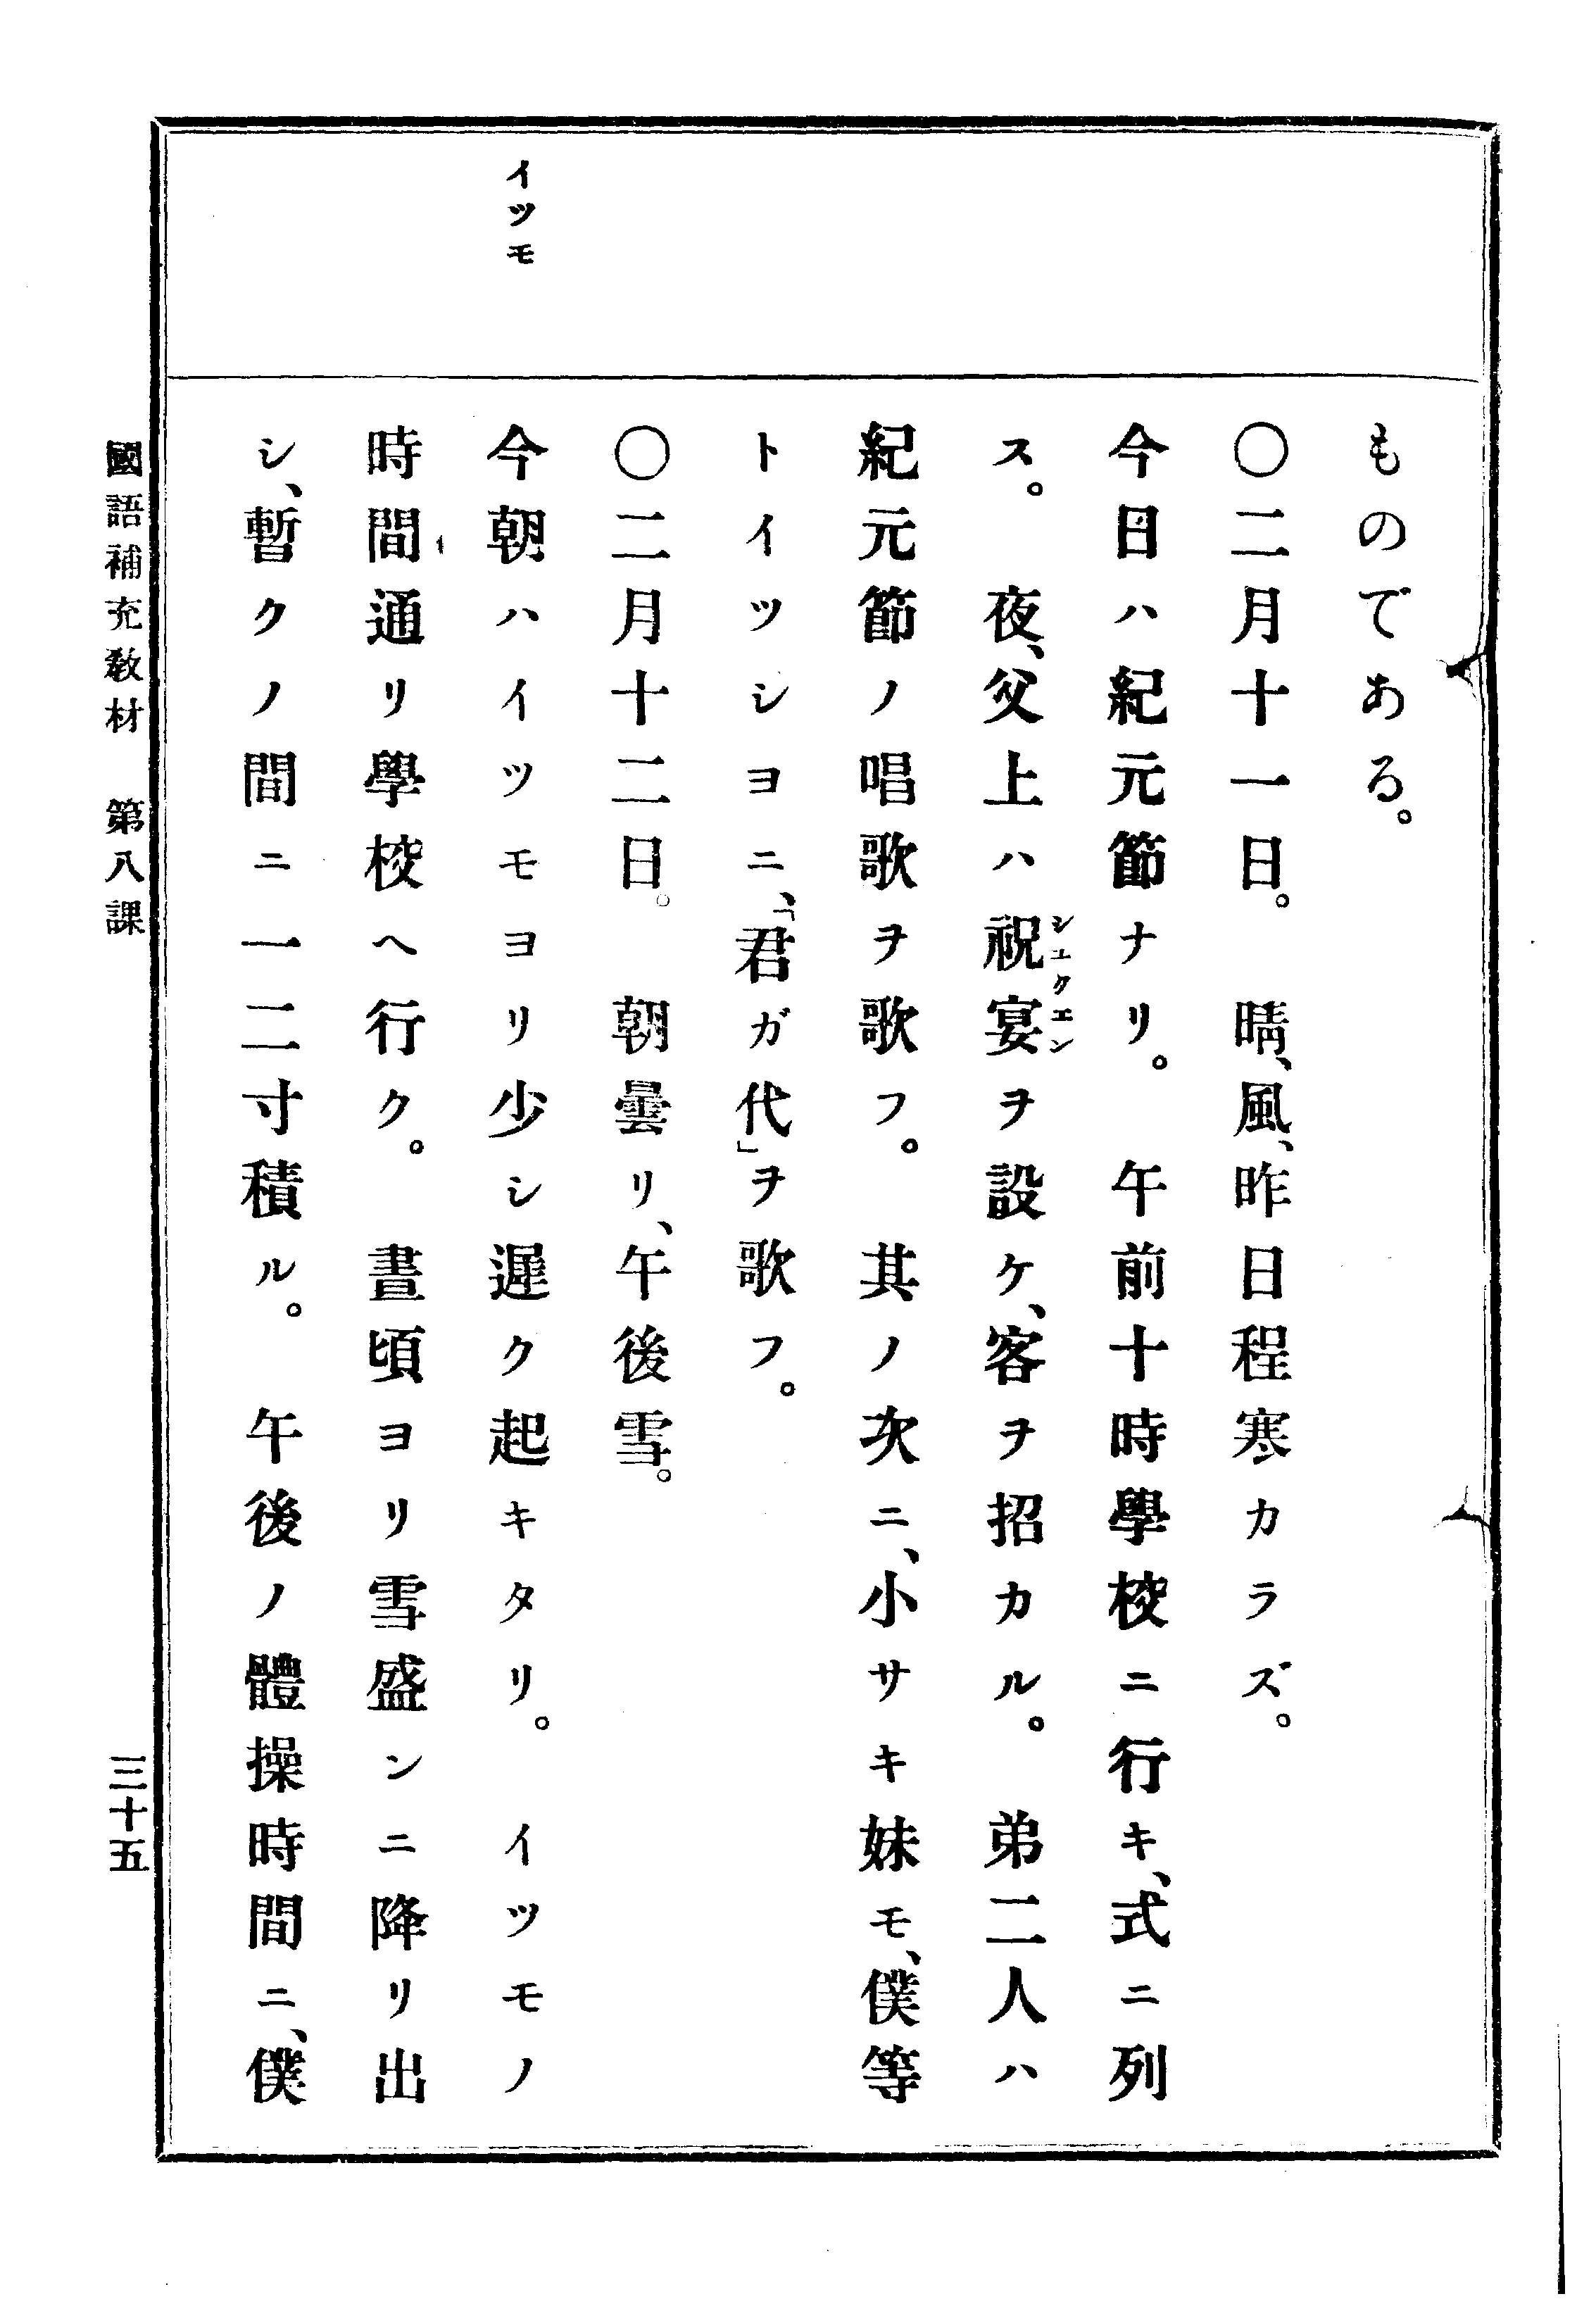 ものである。
〇二月十一日。　晴、風、昨日程寒カラズ。
今日ハ紀元節ナリ。　午前十時學校ニ行キ、式ニ列
ス。　夜、父上ハ祝宴ヲ設ケ、客ヲ招カル。　弟二人ハ
シュクエン
紀元節ノ唱歌ヲ歌フ。　其ノ次ニ、小サキ妹モ、僕等
トイツシヨニ、「君ガ代」ヲ歌フ。
〇二月十二日。　朝曇リ、午後雪。
イツモ
今朝ハイツモヨリ少シ遲ク起キタリ。　イツモノ
時間通リ學校ヘ行ク。　晝頃ヨリ雪盛ンニ降リ出
シ、暫クノ間ニ一二寸積ル。　午後ノ體操時間ニ、僕
國語補充敎材　第八課
三十五